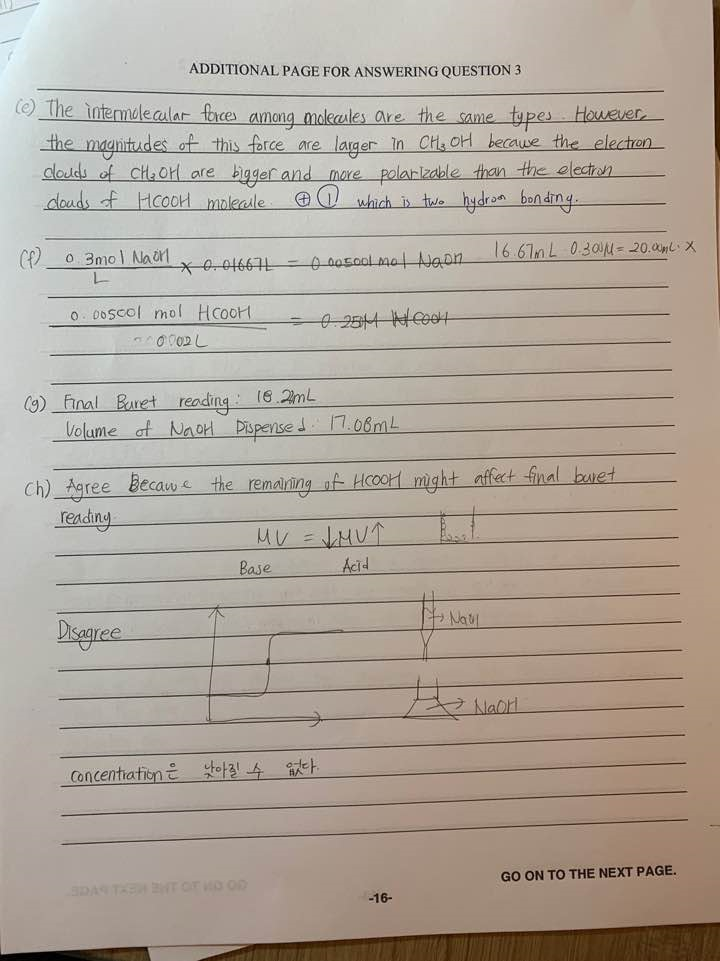 ADDITIONAL PAGE FOR ANSWERING QUESTION 3
(e) The intermolecular forces among molecules are the same types. However,
the magnitudes of this force are larger in CH3OH because the electron
clouds of CH3OH are bigger and more polarizable than the electron
clouds of HCOOH molecule. ⊕ ① which is two hydrogn bonding.
(f) 0.3mol NaOH / L × 0.01667L = 0.005001 mol NaOH 16.67mL · 0.300M = 20.00mL · x
0.005001 mol HCOOH / 0.002L = 0.25M HCOOH
(g) Final Buret reading: 18.2mL
Volume of NaOH Dispensed: 17.08mL
(h) Agree Because the remaining of HCOOH might affect final buret
reading.
MV = ↓MV↑
Base Acid
Disagree
NaOH
NaOH
concentration은 낮아질 수 없다.
GO ON TO THE NEXT PAGE.
GO ON TO THE NEXT PAGE
-16-